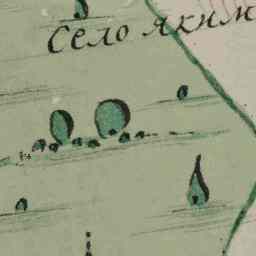 Село яким